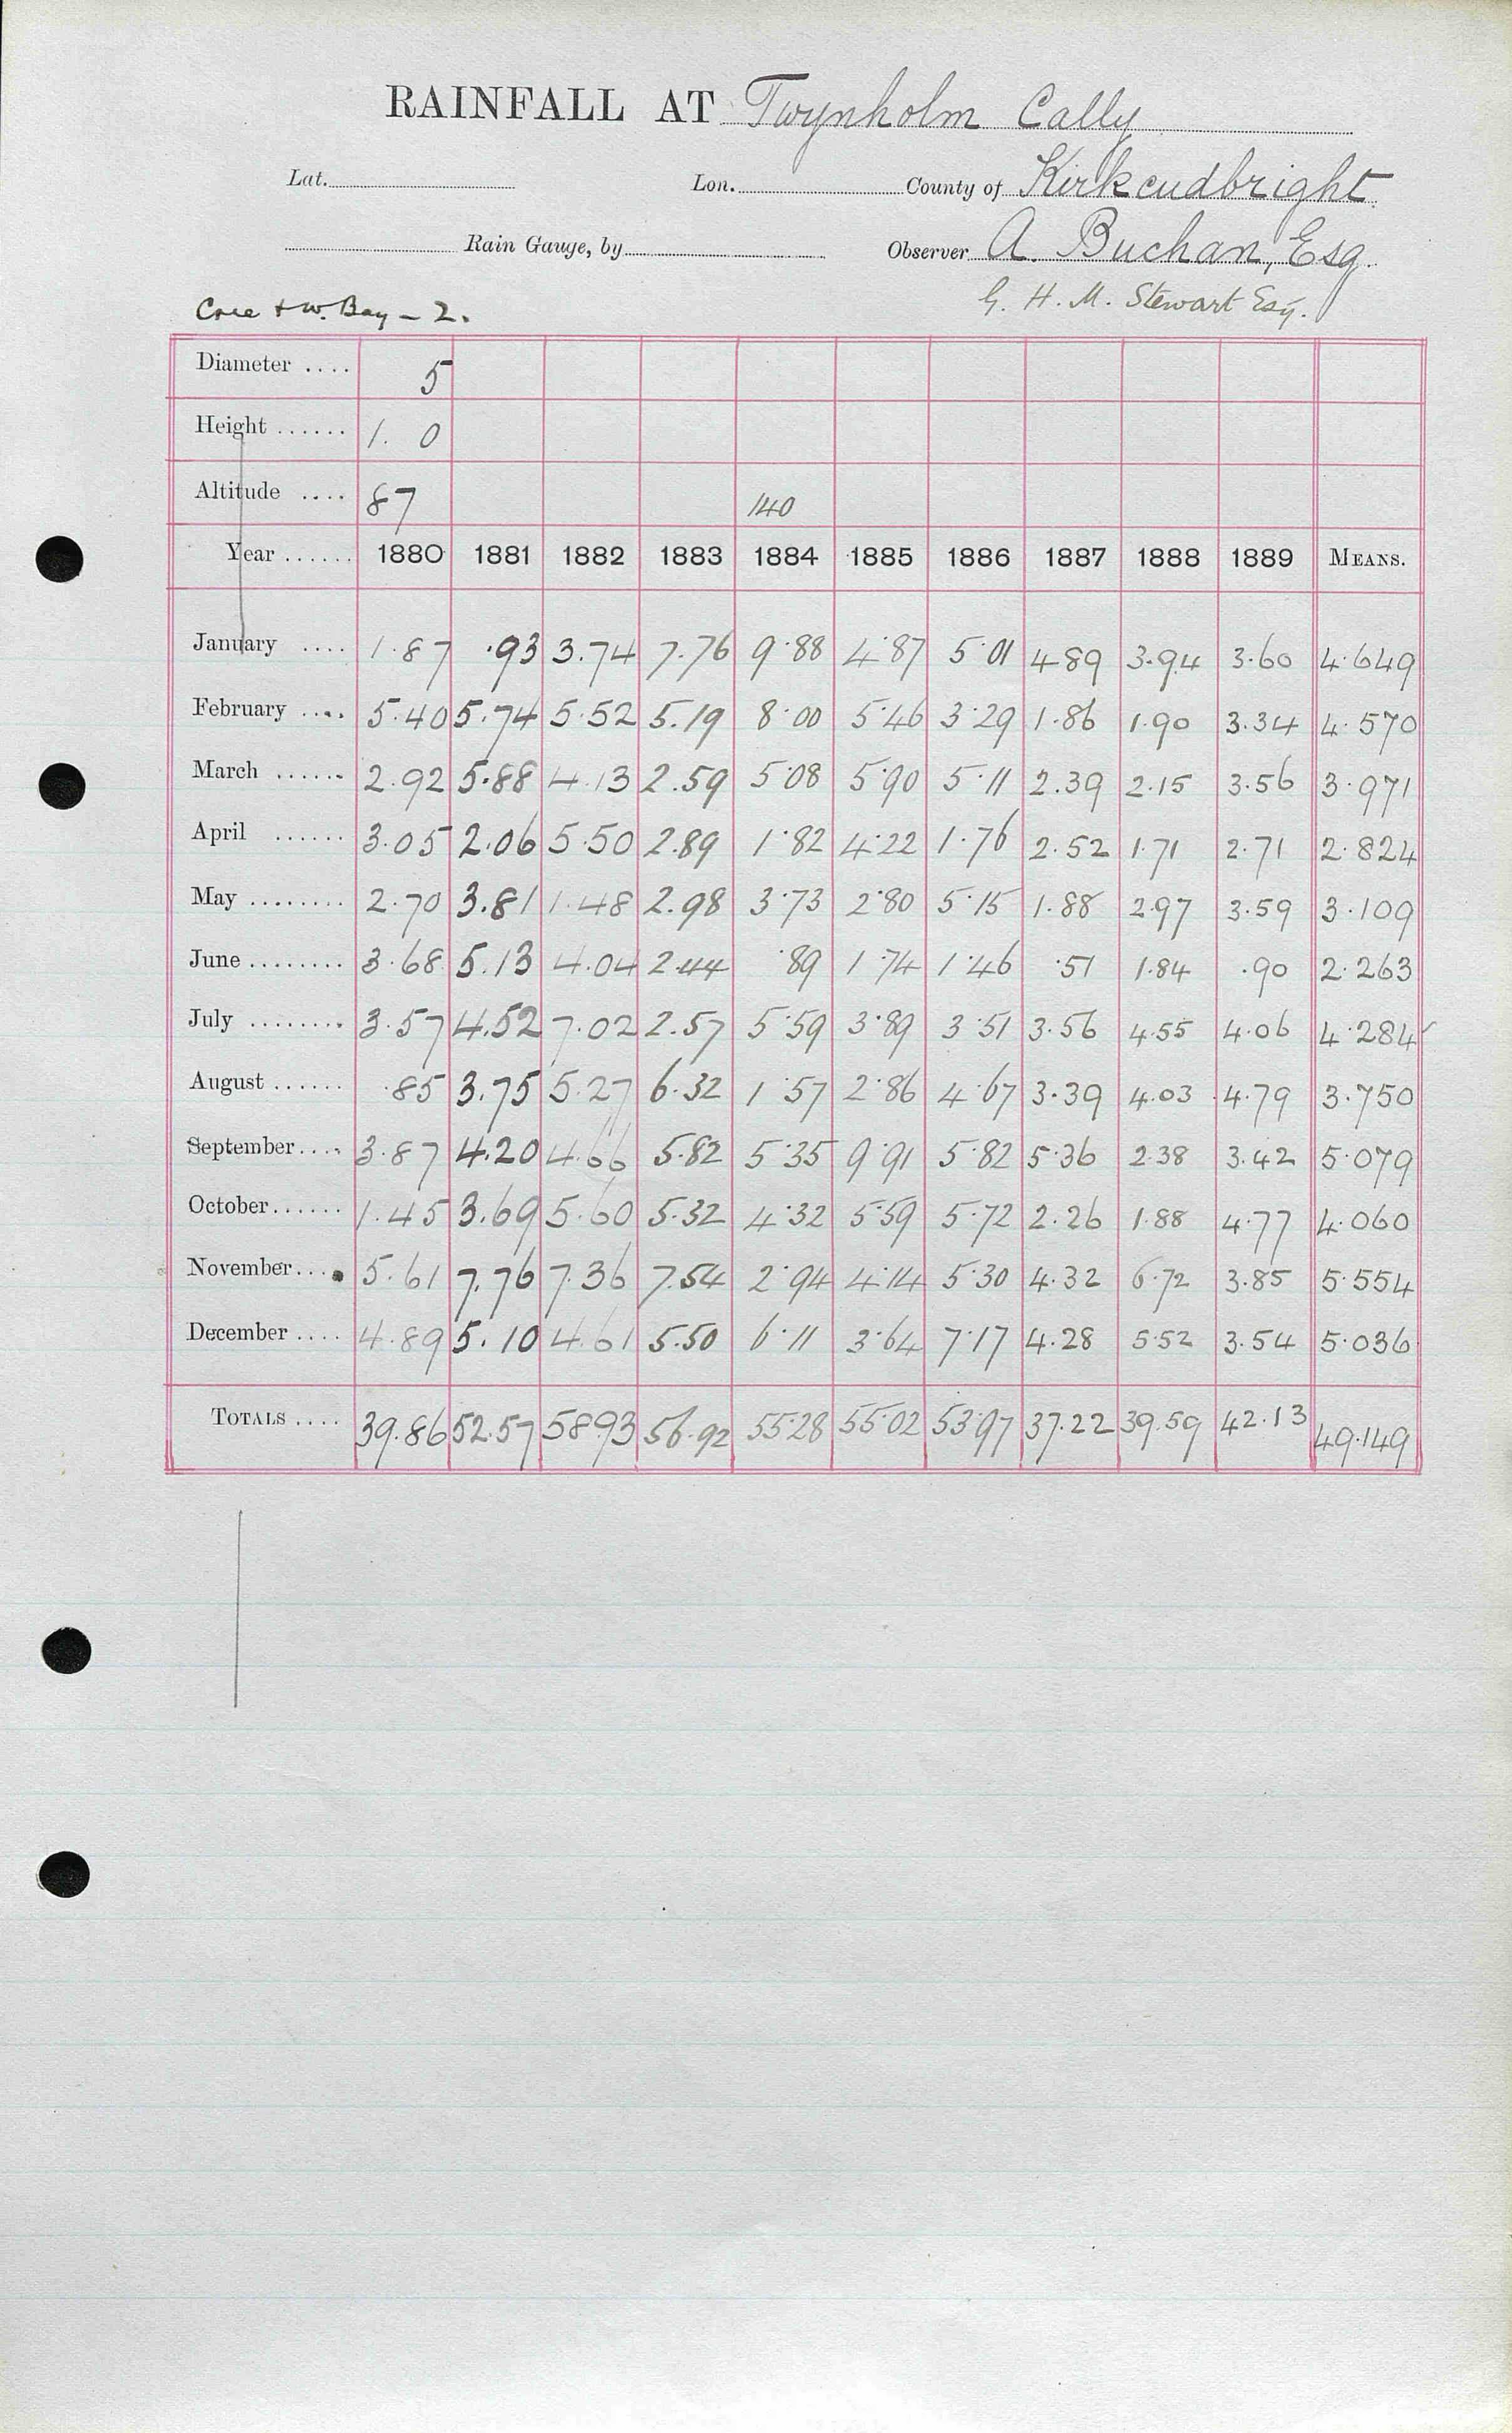 RAINFALL AT Twynholm Cally
Lat. Lon. County of Kirkcudbright
Rain Gauge, by Observer A. Buchan, Esq.
G. H. M. Stewart Esq.
Cree + W. Bay - 2.
Diameter .... 5
Height ...... 1. 0
Altitude .... 87 140
Year ...... 1880 1881 1882 1883 1884 1885 1886 1887 1888 1889 MEANS.
January .... 1.87 .93 3.74 7.76 9.88 4.87 5.01 4.89 3.94 3.60 4.649
February .... 5.40 5.74 5.52 5.19 8.00 5.46 3.29 1.86 1.90 3.34 4.570
March ...... 2.92 5.88 4.13 2.59 5.08 5.90 5.11 2.39 2.15 3.56 3.971
April ...... 3.05 2.06 5.50 2.89 1.82 4.22 1.76 2.52 1.71 2.71 2.824
May ........ 2.70 3.81 1.48 2.98 3.73 2.80 5.15 1.88 2.97 3.59 3.109
June ........ 3.68 5.13 4.04 2.44 .89 1.74 1.46 .51 1.84 .90 2.263
July ........ 3.57 4.52 7.02 2.57 5.59 3.89 3.51 3.56 4.55 4.06 4.284
August ...... .85 3.75 5.27 6.32 1.57 2.86 4.67 3.39 4.03 4.79 3.750
September .... 3.87 4.20 4.66 5.82 5.35 9.91 5.82 5.36 2.38 3.42 5.079
October ...... 1.45 3.69 5.60 5.32 4.32 5.59 5.72 2.26 1.88 4.77 4.060
November .... 5.61 7.76 7.36 7.54 2.94 4.14 5.30 4.32 6.72 3.85 5.554
December .... 4.89 5.10 4.61 5.50 6.11 3.64 7.17 4.28 5.52 3.54 5.036
TOTALS .... 39.86 52.57 58.93 56.92 55.28 55.02 53.97 37.22 39.59 42.13 49.149